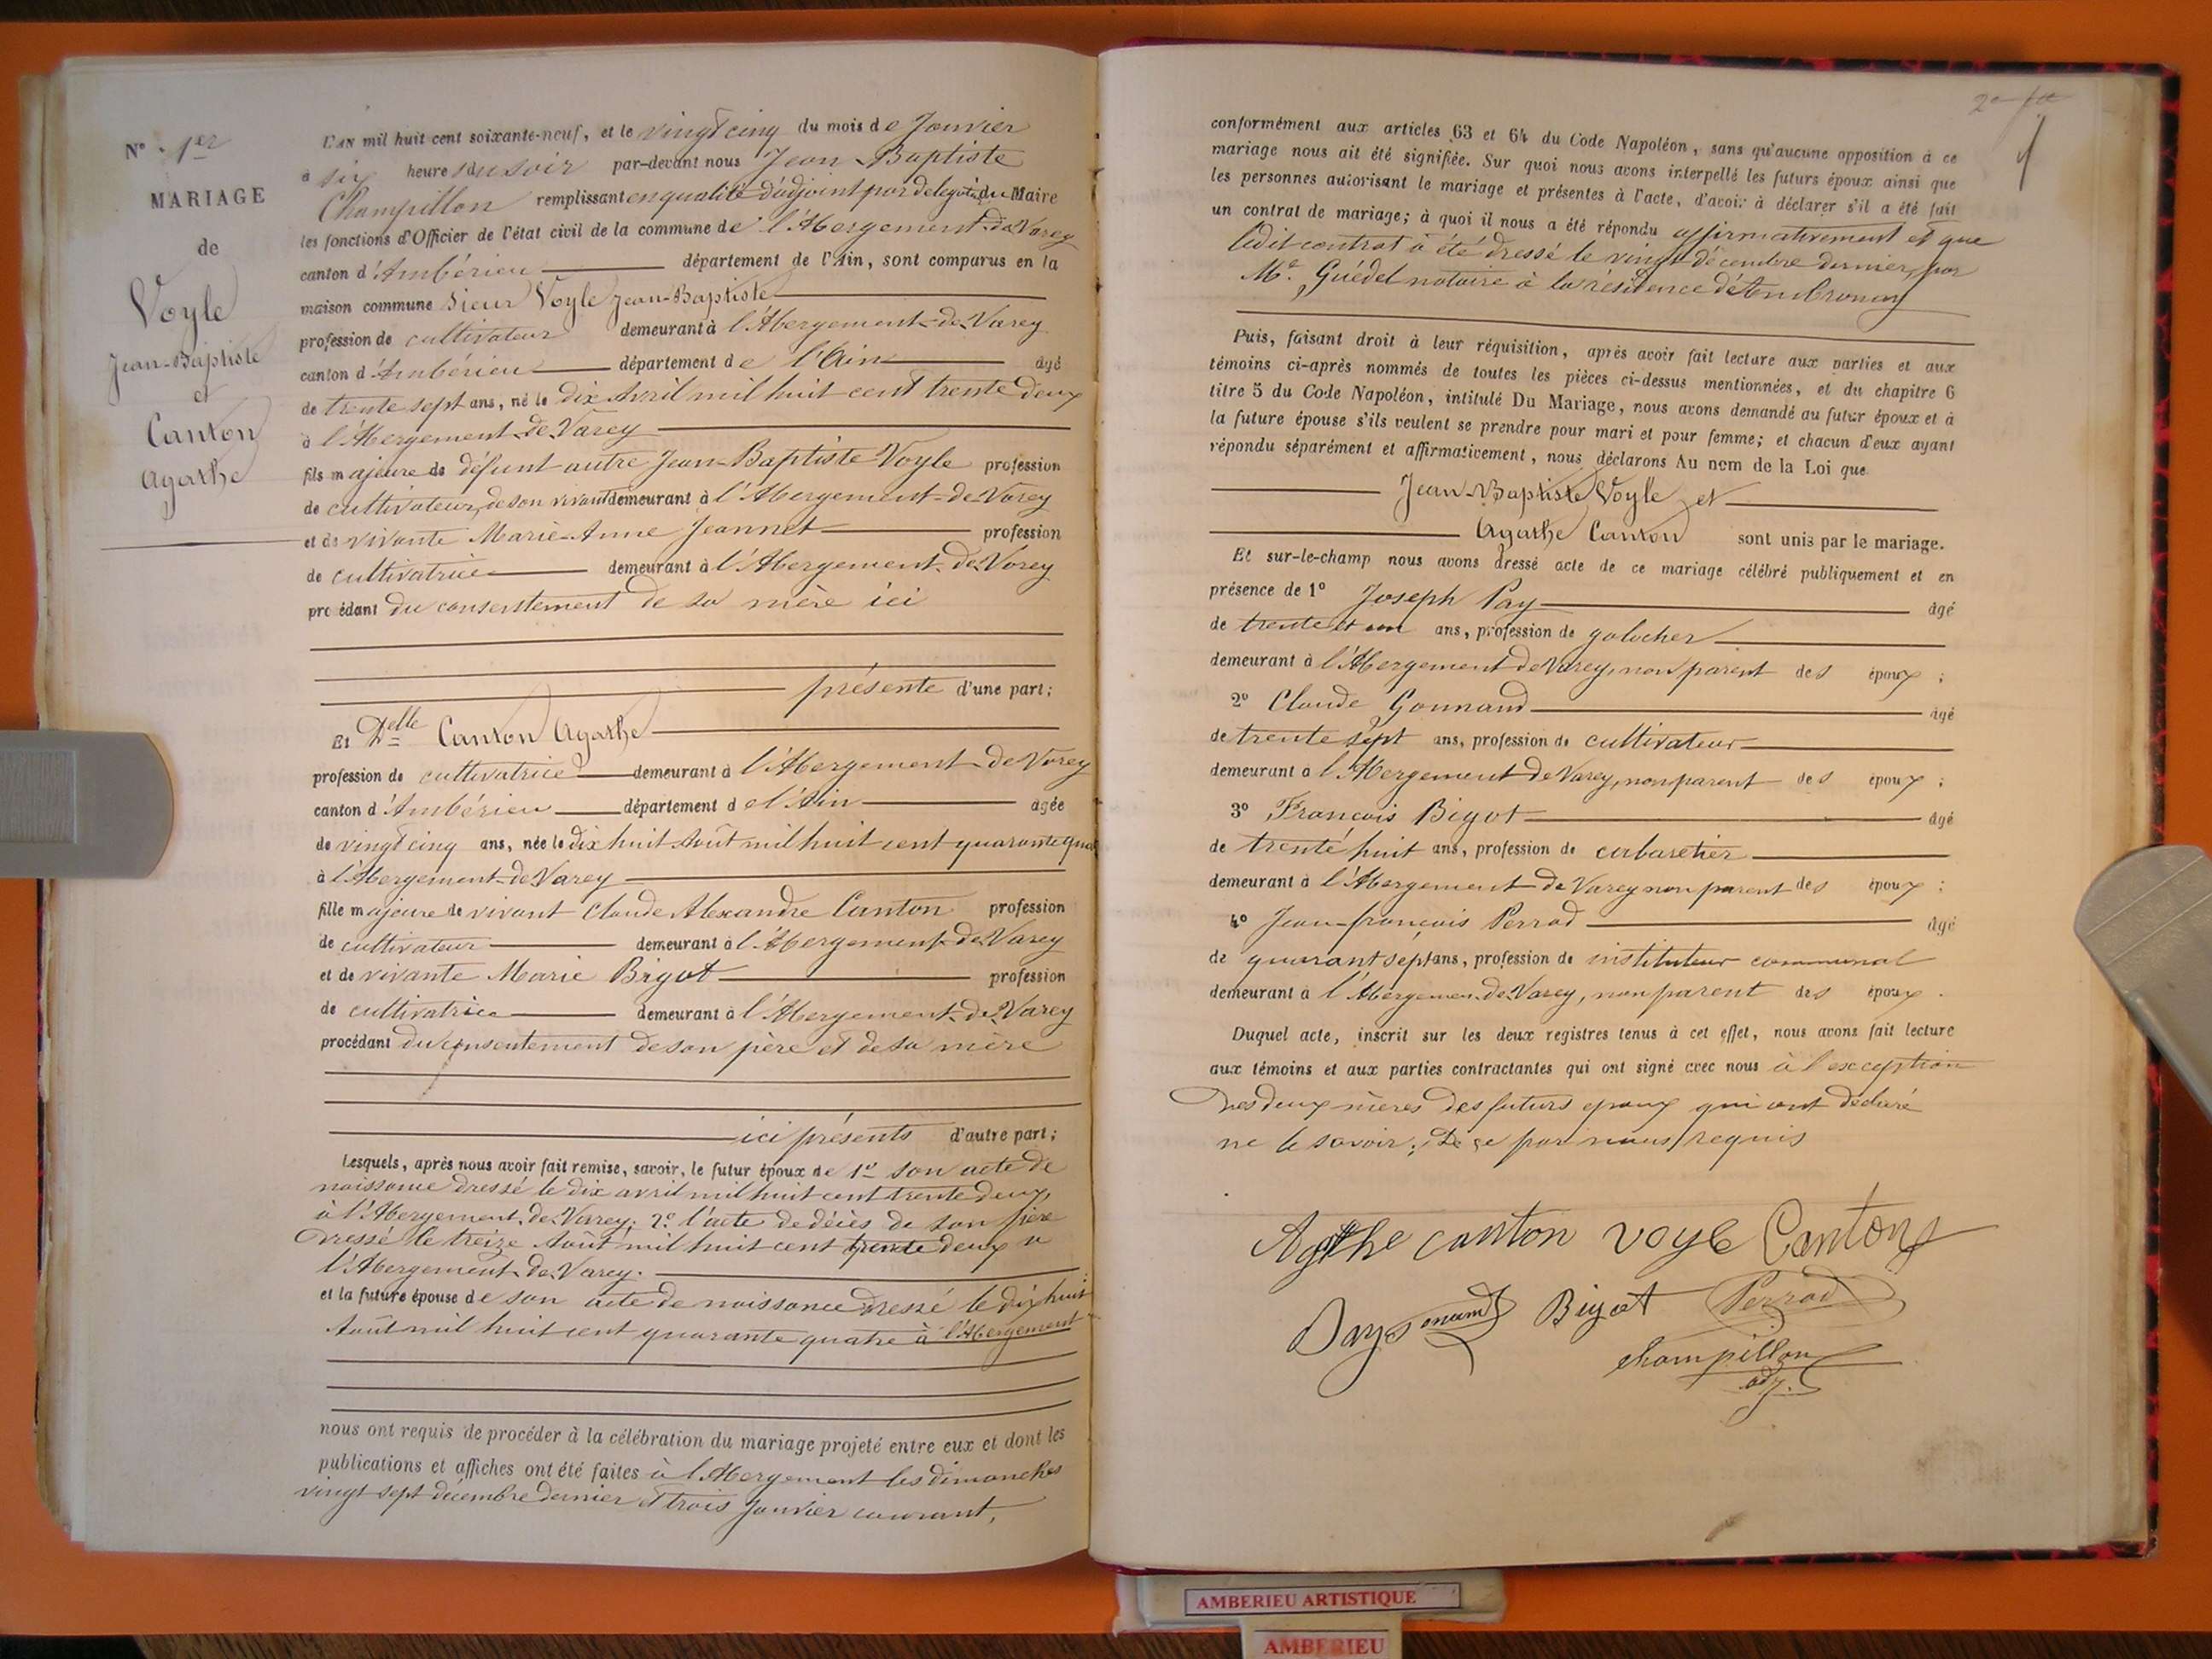 N° 1er
MARIAGE
de
Voyle
Jean-Baptiste
et
Canton
Agathe
L'AN mil huit cent soixante-neuf, et le vingt cinq du mois de Janvier
à six heures du soir par-devant nous Jean-Baptiste
Champillon remplissant en qualité d'adjoint par délégation du Maire
les fonctions d'Officier de l'état civil de la commune de l'Abergement-de-Varey
canton d'Ambérieu département de l'Ain, sont comparus en la
maison commune Sieur Voyle Jean-Baptiste
profession de cultivateur demeurant à l'Abergement-de-Varey
canton d'Ambérieu département de l'Ain âgé
de trente sept ans, né le dix Avril mil huit cent trente deux
à l'Abergement-de-Varey
fils majeure de défunt autre Jean-Baptiste Voyle profession
de cultivateur, de son vivant demeurant à l'Abergement-de-Varey
et de vivante Marie-Anne Jeannet profession
de cultivatrice demeurant à l'Abergement-de-Varey
procédant du consentement de sa mère ici
présente d'une part;
Et Delle Canton Agathe
profession de cultivatrice demeurant à l'Abergement-de-Varey
canton d'Ambérieu département de l'Ain âgée
de vingt cinq ans, née le dix huit Août mil huit cent quarante qua
à l'Abergement-de-Varey
fille majeure de vivant Claude Alexandre Canton profession
de cultivateur demeurant à l'Abergement-de-Varey
et de vivante Marie Bigot profession
de cultivatrice demeurant à l'Abergement-de-Varey
procédant du consentement de son père et de sa mère
ici présents d'autre part;
Lesquels, après nous avoir fait remise, savoir, le futur époux de 1° son acte de
naissance dressé le dix avril mil huit cent trente deux,
à l'Abergement-de-Varey; 2° l'acte de décès de son père
dressé le treize Août mil huit cent trente deux à
l'Abergement-de-Varey.
et la future épouse de son acte de naissance dressé le dix huit
Août mil huit cent quarante quatre à l'Abergement
nous ont requis de procéder à la célébration du mariage projeté entre eux et dont les
publications et affiches ont été faites à l'Abergement les dimanches
vingt sept décembre dernier et trois Janvier courant,
conformément aux articles 63 et 64 du Code Napoléon, sans qu'aucune opposition à ce
mariage nous ait été signifiée. Sur quoi nous avons interpellé les futurs époux ainsi que
les personnes autorisant le mariage et présentes à l'acte, d'avoir à déclarer s'il a été fait
un contrat de mariage; à quoi il nous a été répondu affirmativement et que
ledit contrat à été dressé le vingt décembre dernier, par
Me Guédel notaire à la résidence d'Ambronay
Puis, faisant droit à leur réquisition, après avoir fait lecture aux parties et aux
témoins ci-après nommés de toutes les pièces ci-dessus mentionnées, et du chapitre 6
titre 5 du Code Napoléon, intitulé Du Mariage, nous avons demandé au futur époux et à
la future épouse s'ils veulent se prendre pour mari et pour femme; et chacun d'eux ayant
répondu séparément et affirmativement, nous déclarons Au nom de la Loi que
Jean-Baptiste Voyle et
Agathe Canton sont unis par le mariage.
Et sur-le-champ nous avons dressé acte de ce mariage célébré publiquement et en
présence de 1° Joseph Pay âgé
de trente et un ans, profession de galocher
demeurant à l'Abergement de Varey, non parent des époux;
2° Claude Gonnand âgé
de trente sept ans, profession de cultivateur
demeurant à l'Abergement de Varey, non parent des époux;
3° François Bigot âgé
de trente huit ans, profession de cabaretier
demeurant à l'Abergement-de Varey non parent des époux;
4° Jean-françois Perrod âgé
de quarant sept ans, profession de instituteur communal
demeurant à l'Abergemen-de-Varey, non parent des époux.
Duquel acte, inscrit sur les deux registres tenus à cet effet, nous avons fait lecture
aux témoins et aux parties contractantes qui ont signé avec nous à l'exception
des deux mères des futurs époux qui ont déclaré
ne le savoir; de ce par nous requis
Agathe canton voyle Canton
Bigot Perrod
champillon
adj.
AMBERIEU ARTISTIQUE
AMBERIEU